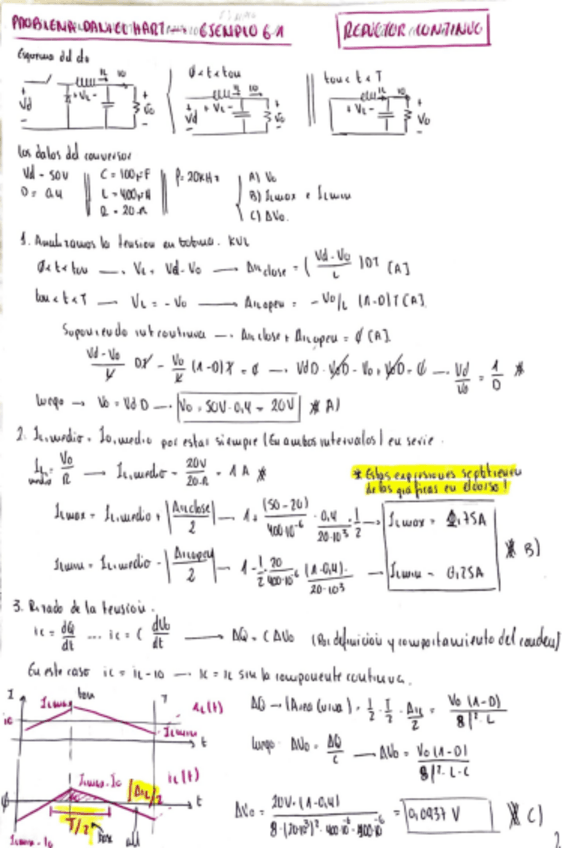 PROBLEMA DANIEL HART EJEMPLO 6.1
REDUCTOR CONTINUO
Esquema del cto
0<t<ton
ton<t<T
Vd + VL - iL io + Vo -
Vd + VL - iL io + Vo -
+ VL - iL io + Vo -
Los datos del conversor
Vd = 50V C = 100μF f = 20kHz A) Vo
D = 0,4 L = 400μH B) ILmax e ILmin
R = 20Ω C) ΔVo.
1. Analizamos la tension en bobina. KVL
0<t<ton → VL = Vd-Vo → ΔiLclose = (Vd-Vo / L) DT [A]
ton<t<T → VL = -Vo → ΔiLopen = -Vo/L (1-D)T [A]
Suponiendo int continua → ΔiLclose + ΔiLopen = 0 [A]
Vd-Vo / L DT - Vo / L (1-D)T = 0 → VdD - VoD - Vo + VoD = 0 → Vd / Vo = 1 / D *
Luego → Vo = VdD → Vo = 50V·0,4 = 20V * A)
2. IL,medio = Io,medio por estar siempre (En ambos intervalos) en serie.
IL medio = Vo / R → IL,medio = 20V / 20Ω = 1A *
* Estas expresiones se obtienen de las gráficas en el curso!
ILmax = IL,medio + |ΔiLclose / 2| → 1 + (50-20) / 400·10^-6 · 0,4 / 20·10^3 · 1/2 → ILmax = 1,75A
ILmin = IL,medio - |ΔiLopen / 2| → 1 - 1/2 · 20 / 400·10^-6 · (1-0,4) / 20·10^3 → ILmin = 0,25A
* B)
3. Rizado de la tension.
ic = dQ / dt ... ic = C dVo / dt → ΔQ = CΔVo (Por definicion y comportamiento del conden)
En este caso ic = iL - io → ic = iL sin la componente continua.
I ILmax ton T iL(t)
io ILmin t
ΔQ → (Area curva) = 1/2 · T/2 · ΔiL/2 = Vo (1-D) / 8f²·L
Luego ΔVo = ΔQ / C → ΔVo = Vo (1-D) / 8f²·L·C
ILmax-Io ΔiL/2 ic(t)
0 t
T/2
ILmin-Io
ΔVo = 20V·(1-0,4) / 8·(20·10^3)²·400·10^-6·100·10^-6 = 0,0937 V * C)
2